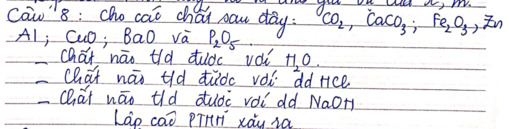 Câu 8: Cho các chất sau đây: CO2, CaCO3; Fe2O3, Zn
Al; CuO; BaO và P2O5.
- Chất nào t/d được với H2O.
- Chất nào t/d được với dd HCl
- Chất nào t/d được với dd NaOH
Lập các PTHH xảy ra